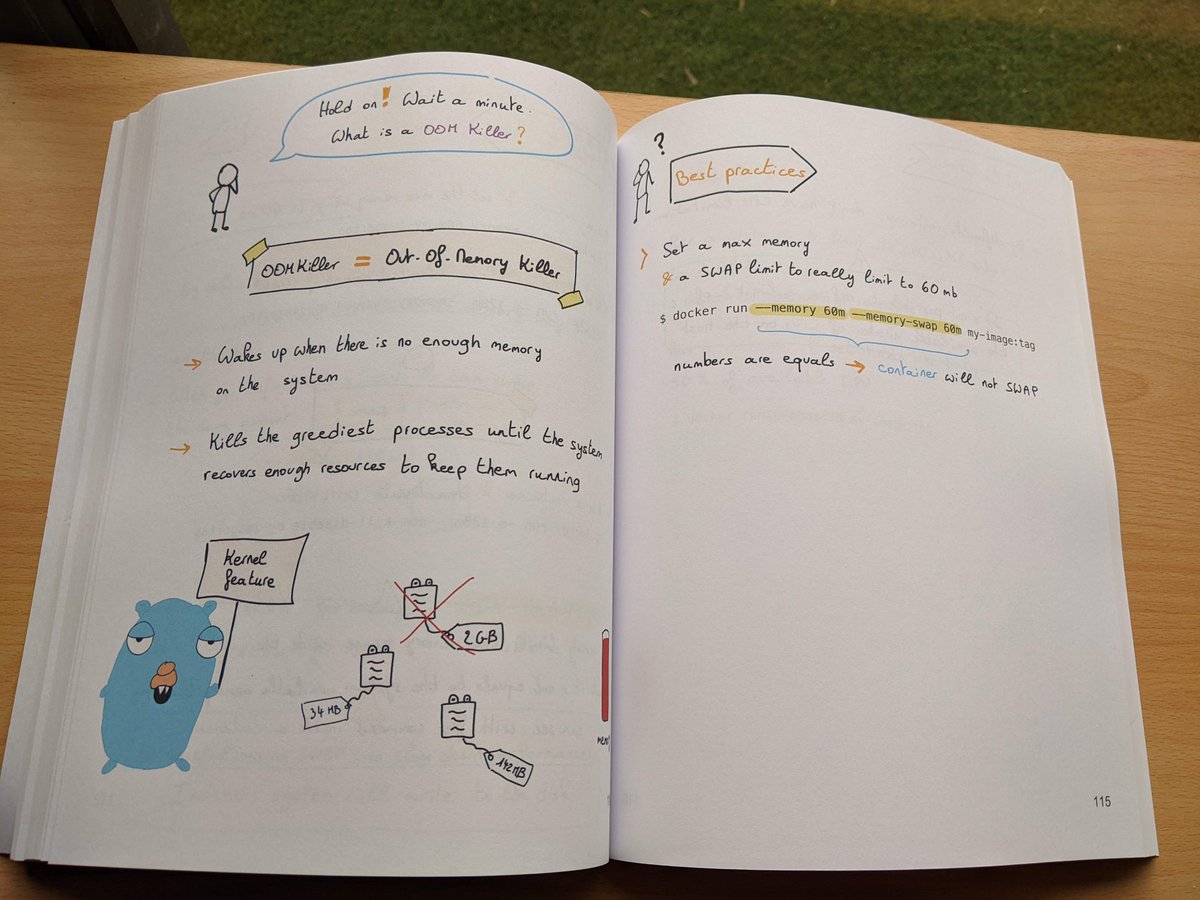 Hold on! Wait a minute.
What is a OOM Killer?
OOMKiller = Out-Of-Memory Killer
→ Wakes up when there is no enough memory
on the system
→ Kills the greediest processes until the system
recovers enough resources to keep them running
Kernel
feature
2 GB
34 MB
142MB
?
Best practices
> Set a max memory
& a SWAP limit to really limit to 60 mb
$ docker run --memory 60m --memory-swap 60m my-image:tag
numbers are equals → container will not SWAP
115